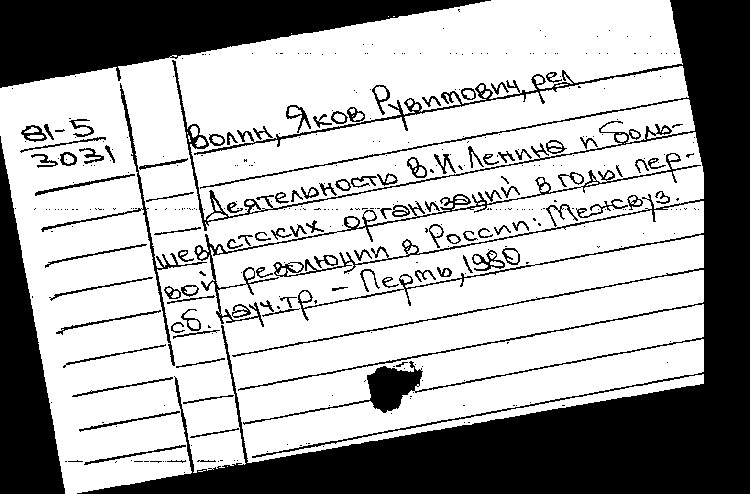 81-5
3031
Волин, Яков Рувимович, ред.
Деятельность В.И. Ленина и боль-
шевистских организаций в годы пер-
вой революции в России: Межвуз.
сб. науч. тр. – Пермь, 1980.